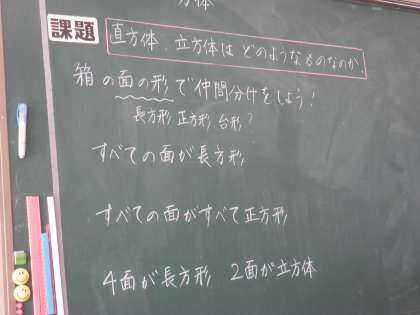 方体
課題
直方体、立方体は どのようなものなのか。
箱の面の形で仲間分けをしよう!
長方形 正方形、台形?
すべての面が長方形
すべての面がすべて正方形
4面が長方形 2面が立方体